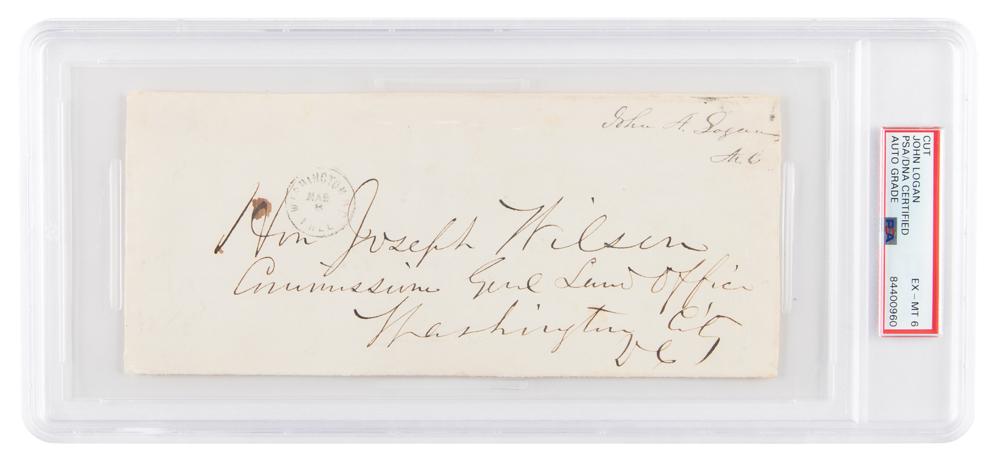 John A. Logan
M.C
WASHINGTON
MAR
8
FREE
Hon Joseph Wilson
Commissione Genl Land Office
Washington City
D C
CUT
JOHN LOGAN
PSA/DNA CERTIFIED
AUTO GRADE
EX - MT 6
PSA
84400960